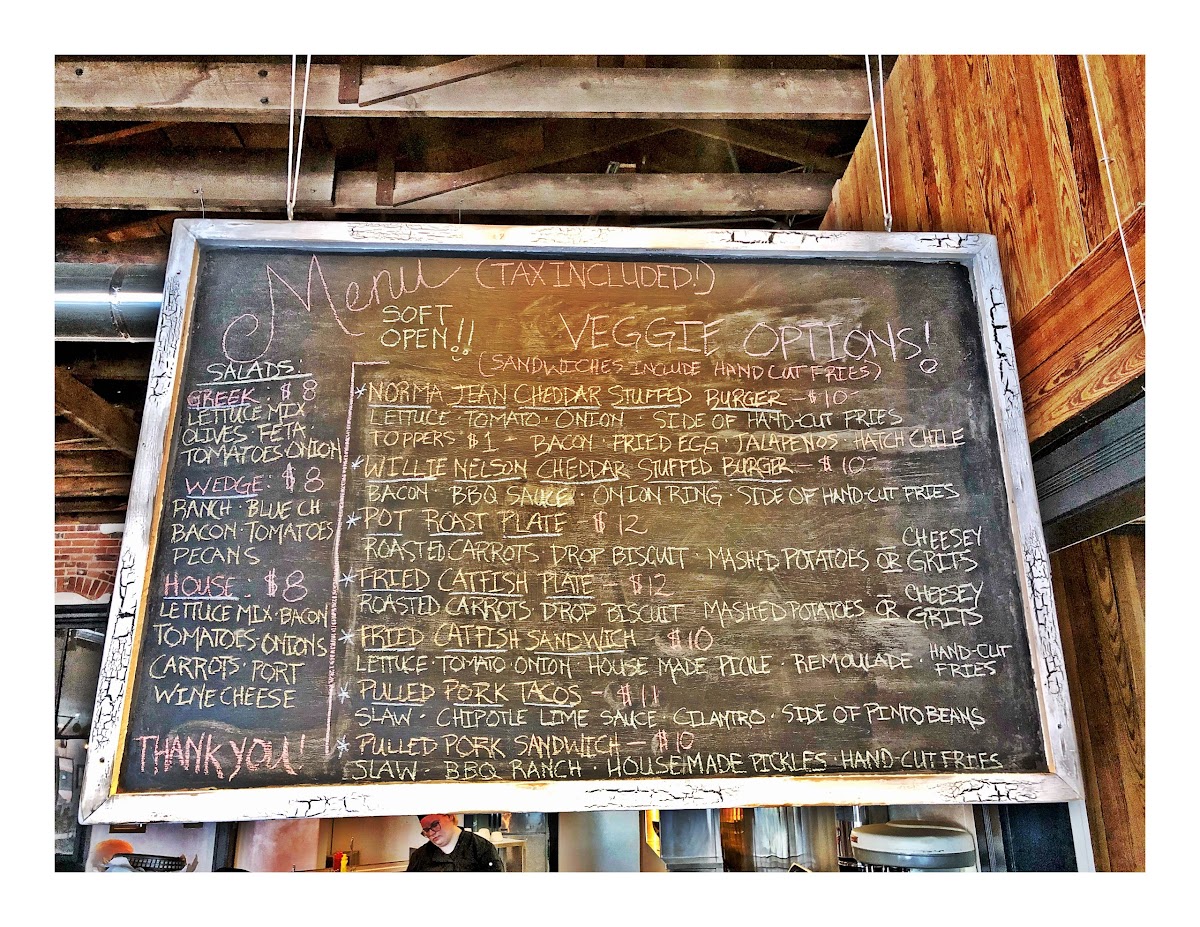 Menu (TAX INCLUDED!)
SOFT
OPEN!!
VEGGIE OPTIONS!
(SANDWICHES INCLUDE HAND CUT FRIES)
SALADS:
GREEK: $8
LETTUCE MIX·
OLIVES·FETA·
TOMATOES·ONION
WEDGE: $8
RANCH·BLUE CH
BACON·TOMATOES
PECANS
HOUSE: $8
LETTUCE MIX·BACON
TOMATOES·ONIONS
CARROTS·PORT
WINE CHEESE
THANK YOU!
*NORMA JEAN CHEDDAR STUFFED BURGER-$10-
LETTUCE·TOMATO·ONION SIDE OF HAND-CUT FRIES
TOPPERS $1 - BACON·FRIED EGG·JALAPENOS·HATCH CHILE
*WILLIE NELSON CHEDDAR STUFFED BURGER-$10-
BACON·BBQ SAUCE·ONION RING·SIDE OF HAND-CUT FRIES
*POT ROAST PLATE-$12
ROASTED CARROTS DROP BISCUIT·MASHED POTATOES OR CHEESEY GRITS
*FRIED CATFISH PLATE-$12
ROASTED CARROTS DROP BISCUIT MASHED POTATOES OR CHEESEY GRITS
*FRIED CATFISH SANDWICH-$10
LETTUCE·TOMATO ONION HOUSE MADE PICKLE·REMOULADE·HAND-CUT FRIES
*PULLED PORK TACOS-$11
SLAW·CHIPOTLE LIME SAUCE·CILANTRO·SIDE OF PINTO BEANS
*PULLED PORK SANDWICH-$10
SLAW·BBQ RANCH·HOUSEMADE PICKLES·HAND-CUT FRIES